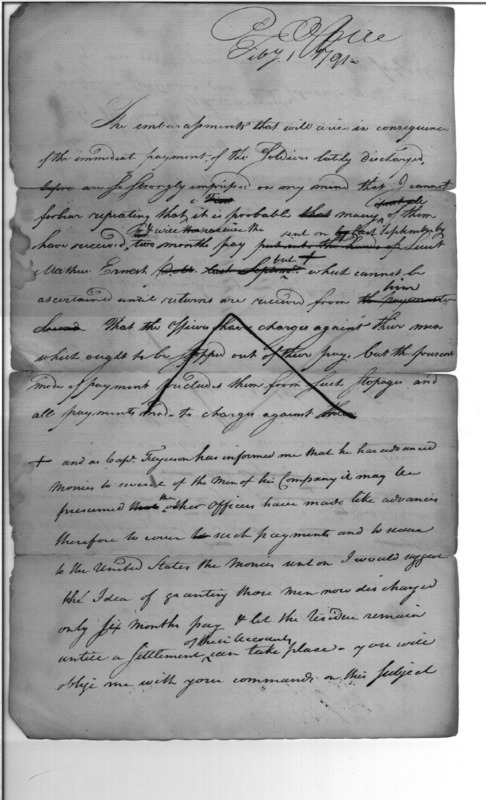 P. Office
Feby 1 1791
The embarassments that will arise in consequence
of the immediate payment of the Soldiers lately discharged,
before are so strongly impressed on my mind that I cannot
forbear repeating that, it is probable that many of them
have received, two months pay sent on by last September by
Matthew Ernest but + which cannot be
ascertained until returns are received from him
That the officers have charges against their men
which ought to be stopped out of their pay, but the present
mode of payment precludes them from such stopages and
all payments made to charges against
+ and as Capt. Ferguson has informed me that he has advanced
Monies to several of the Men of his Company it may be
presumed that other Officers have made like advances
therefore to cover such payments and to secure
to the United States the Monies sent on I would suggest
the Idea of granting those men now discharged
only six months pay & let the residue remain
until a settlement of their Accounts can take place - you will
oblige me with your commands on this subject